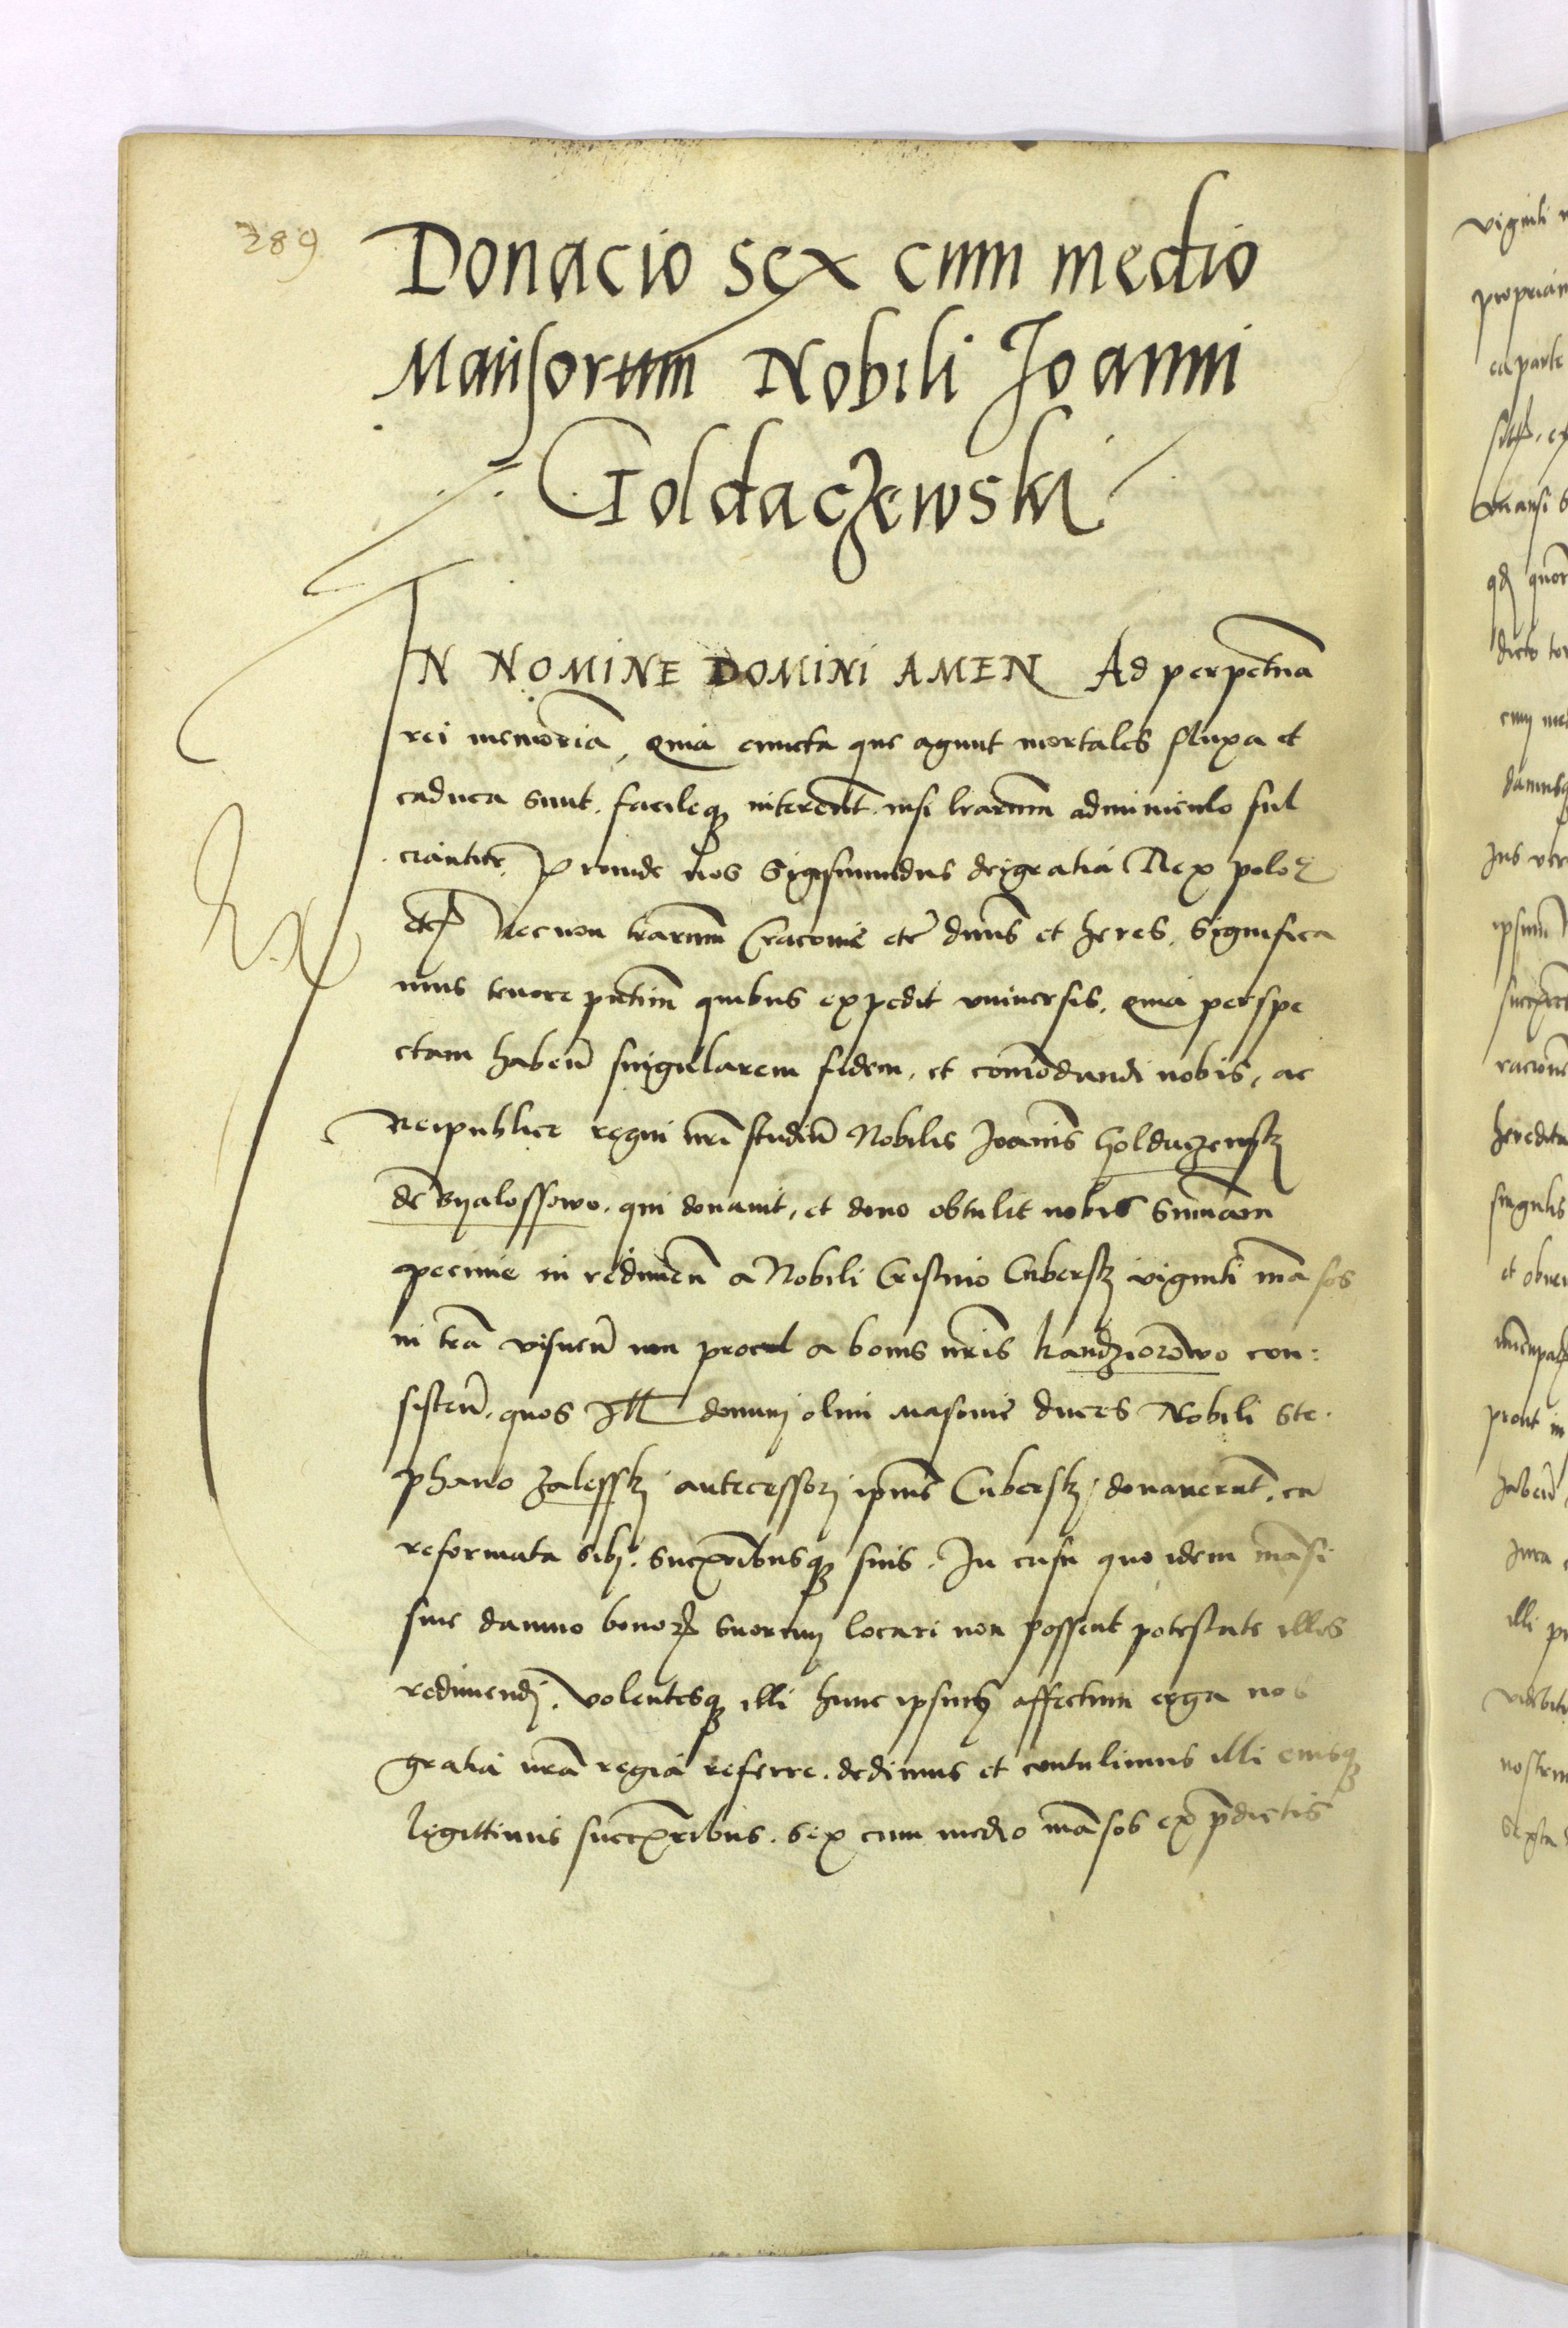 289
Donacio sex cum medio
Mansorum Nobili Joanni
Goldaczewski
IN NOMINE DOMINI AMEN Ad perpetuā
rei memoriā, quia cuncta que agunt mortales fluxa et
caduca sunt. facileq; intereūt. nisi lrarum adminiculo ful
ciantur. Proinde nos Sigismundus dei gratia Rex polo
etc Necnon trarum Cracovie etc dnus et heres. Significa
mus tenore pntium quibus expedit universis. quia perspe
ctam haben singularem fidem, et comodandi nobis, ac
Reipublice regni nri studiu Nobilis Joanis Goldaczewskj
de Byalossowo. qui donavit, et dono obtulit nobis Sumam
pecunie in redimen a Nobili Cristino Cuberskj viginti mansos
in tra visnen non procul a bonis nris kandziorowo con:
sisten. quos Ill domini olim masovie duces Nobili Ste.
phano Zalesskj antecessori ipius Cuberskj donaverut. ea
reformata sibj. Succribusq; suis. In casu quo idem mansi
sine damno bonor suorum locari non possent potestate illos
redimendj. Volentesq; illi hunc ipsius affectum erga nos
gratiā nrā regiā referre. dedimus et contulimus illi eiusq;
legittimis succribus. sex cum medio mansos ex predictis